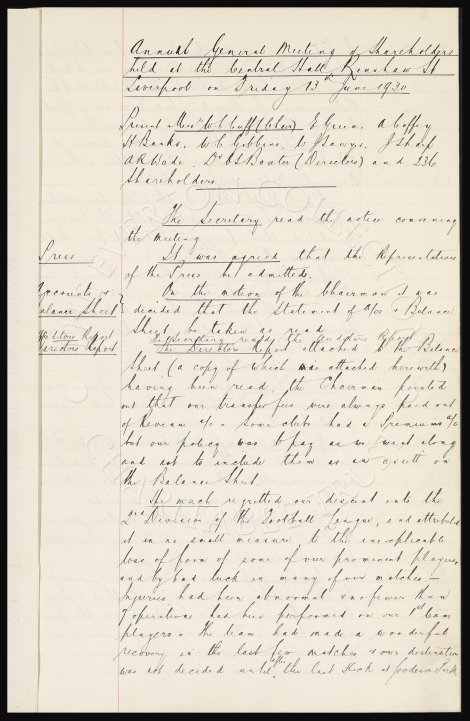 Annual General Meeting of Shareholders
held at the Central Hall Renshaw St
Liverpool on Friday 13th June 1930
Present Messrs W.C. Cuff (Chair) E Green, A Coffey
H Banks, W C Gibbins, W J Sawyer. J Sharp
A R Wade, Dr C S Baxter (Directors) and 236
Shareholders
The Secretary read the notice convening
the meeting
Press
It was agreed that the Representatives
of the Press be admitted.
Accounts &
Balance Sheet
On the motion of the Chairman it was
decided that the Statement of a/cs & Balance
Sheet be taken as read
Auditors Report
Directors Report
The Secretary read the Auditors Report
The Directors Report attached to the Balance
Sheet (a copy of which was attached herewith)
having been read, the Chairman pointed
out that our transfer fees were always paid out
of Revenue a/c. Some clubs had a Premiums a/c
but our policy was to pay as we went along
and not to include them as an asset on
the Balance Sheet.
He much regretted our descent into the
2nd Division of the Football League, and attributed
it in no small measure to the inexplicable
loss of form of some of our prominent players,
and by bad luck in many of our matches —
Injuries had been abnormal & no fewer than
7 operations had been performed on our 1st team
players. The team had made a wonderful
recovery in the last few matches & our destination
was not decided until after the last Kick at Goodison Park